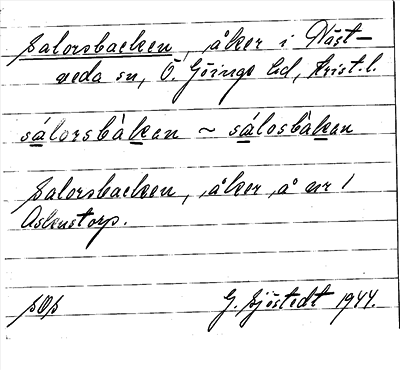 Salorsbacken, åker i Näst-
veda sn, Ö. Göinge hd, Krist. l.
sálorsbàkan ~ sálosbàkan
Salorsbacken, åker å nr 1
Askustorp.
G. Sjöstedt 1944.